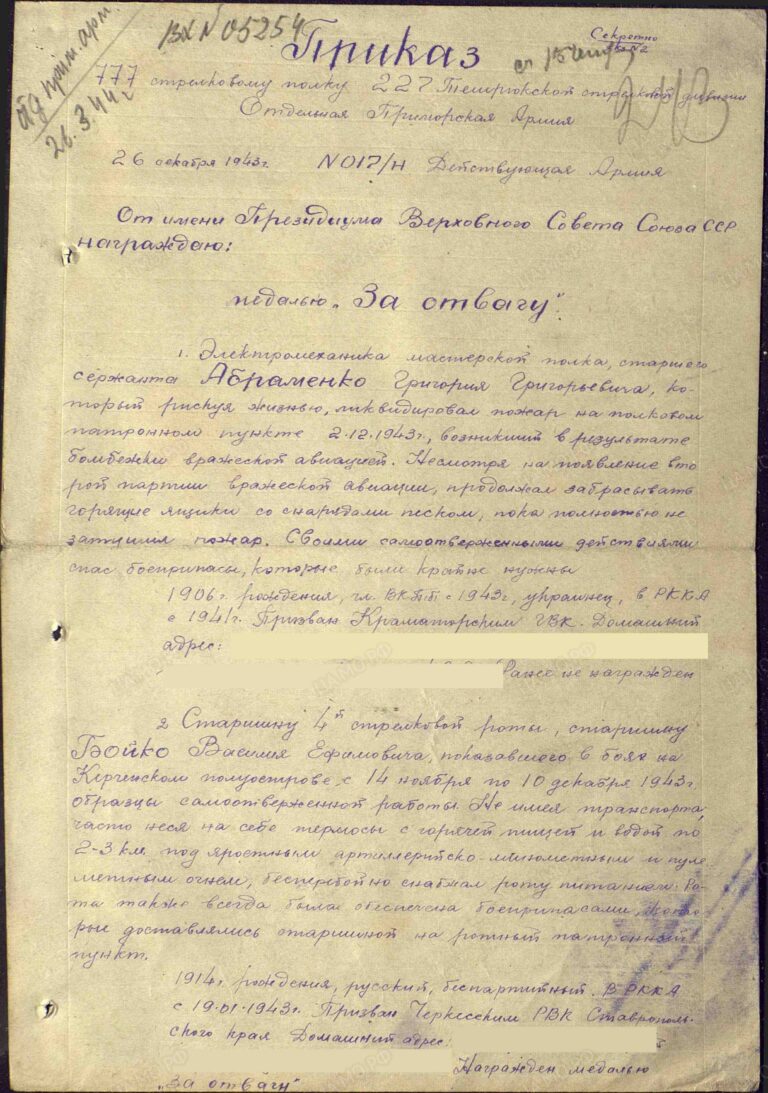 Вх N 05254
Секретно
Экз N2
Приказ
отд прим. арм.
26.3.44г
777 стрелковому полку 227 Темрюкской стрелковой дивизии
Отдельная Приморская Армия
26 декабря 1943г. N 017/н Действующая Армия
От имени Президиума Верховного Совета Союза ССР
награждаю:
медалью „За отвагу"
1. Электромеханика мастерской полка, старшего
сержанта Абраменко Григория Григорьевича, ко-
торый рискуя жизнью, ликвидировал пожар на полковом
патронном пункте 2.12.1943г., возникший в результате
бомбежки вражеской авиацией. Несмотря на появление вто
рой партии вражеской авиации, продолжал забрасывать
горящие ящики со снарядами песком, пока полностью не
затушил пожар. Своими самоотверженными действиями
спас боеприпасы, которые были крайне нужны
1906г. рождения, чл. ВКП.б с 1943г, украинец, в РККА
с 1941г. Призван Краматорским ГВК. Домашний
адрес:
Ранее не награжден
2 Старшину 4й стрелковой роты, старшину
Бойко Василия Ефимовича, показавшего в боях на
Керченском полуострове с 14 ноября по 10 декабря 1943г.
образцы самоотверженной работы. Не имея транспорта,
часто неся на себе термосы с горячей пищей и водой по
2-3 км под яростным артиллерийско-минометным и пуле
метным огнем, бесперебойно снабжал роту питанием. Ро-
та также всегда была обеспечена боеприпасами, кото-
рые доставлялись старшиной на ротный патронный
пункт.
1914г. рождения, русский, беспартийный. В РККА
с 19.01.1943г. Призван Черкесским РВК Ставрополь-
ского края Домашний адрес:
Награжден медалью
„За отвагу"